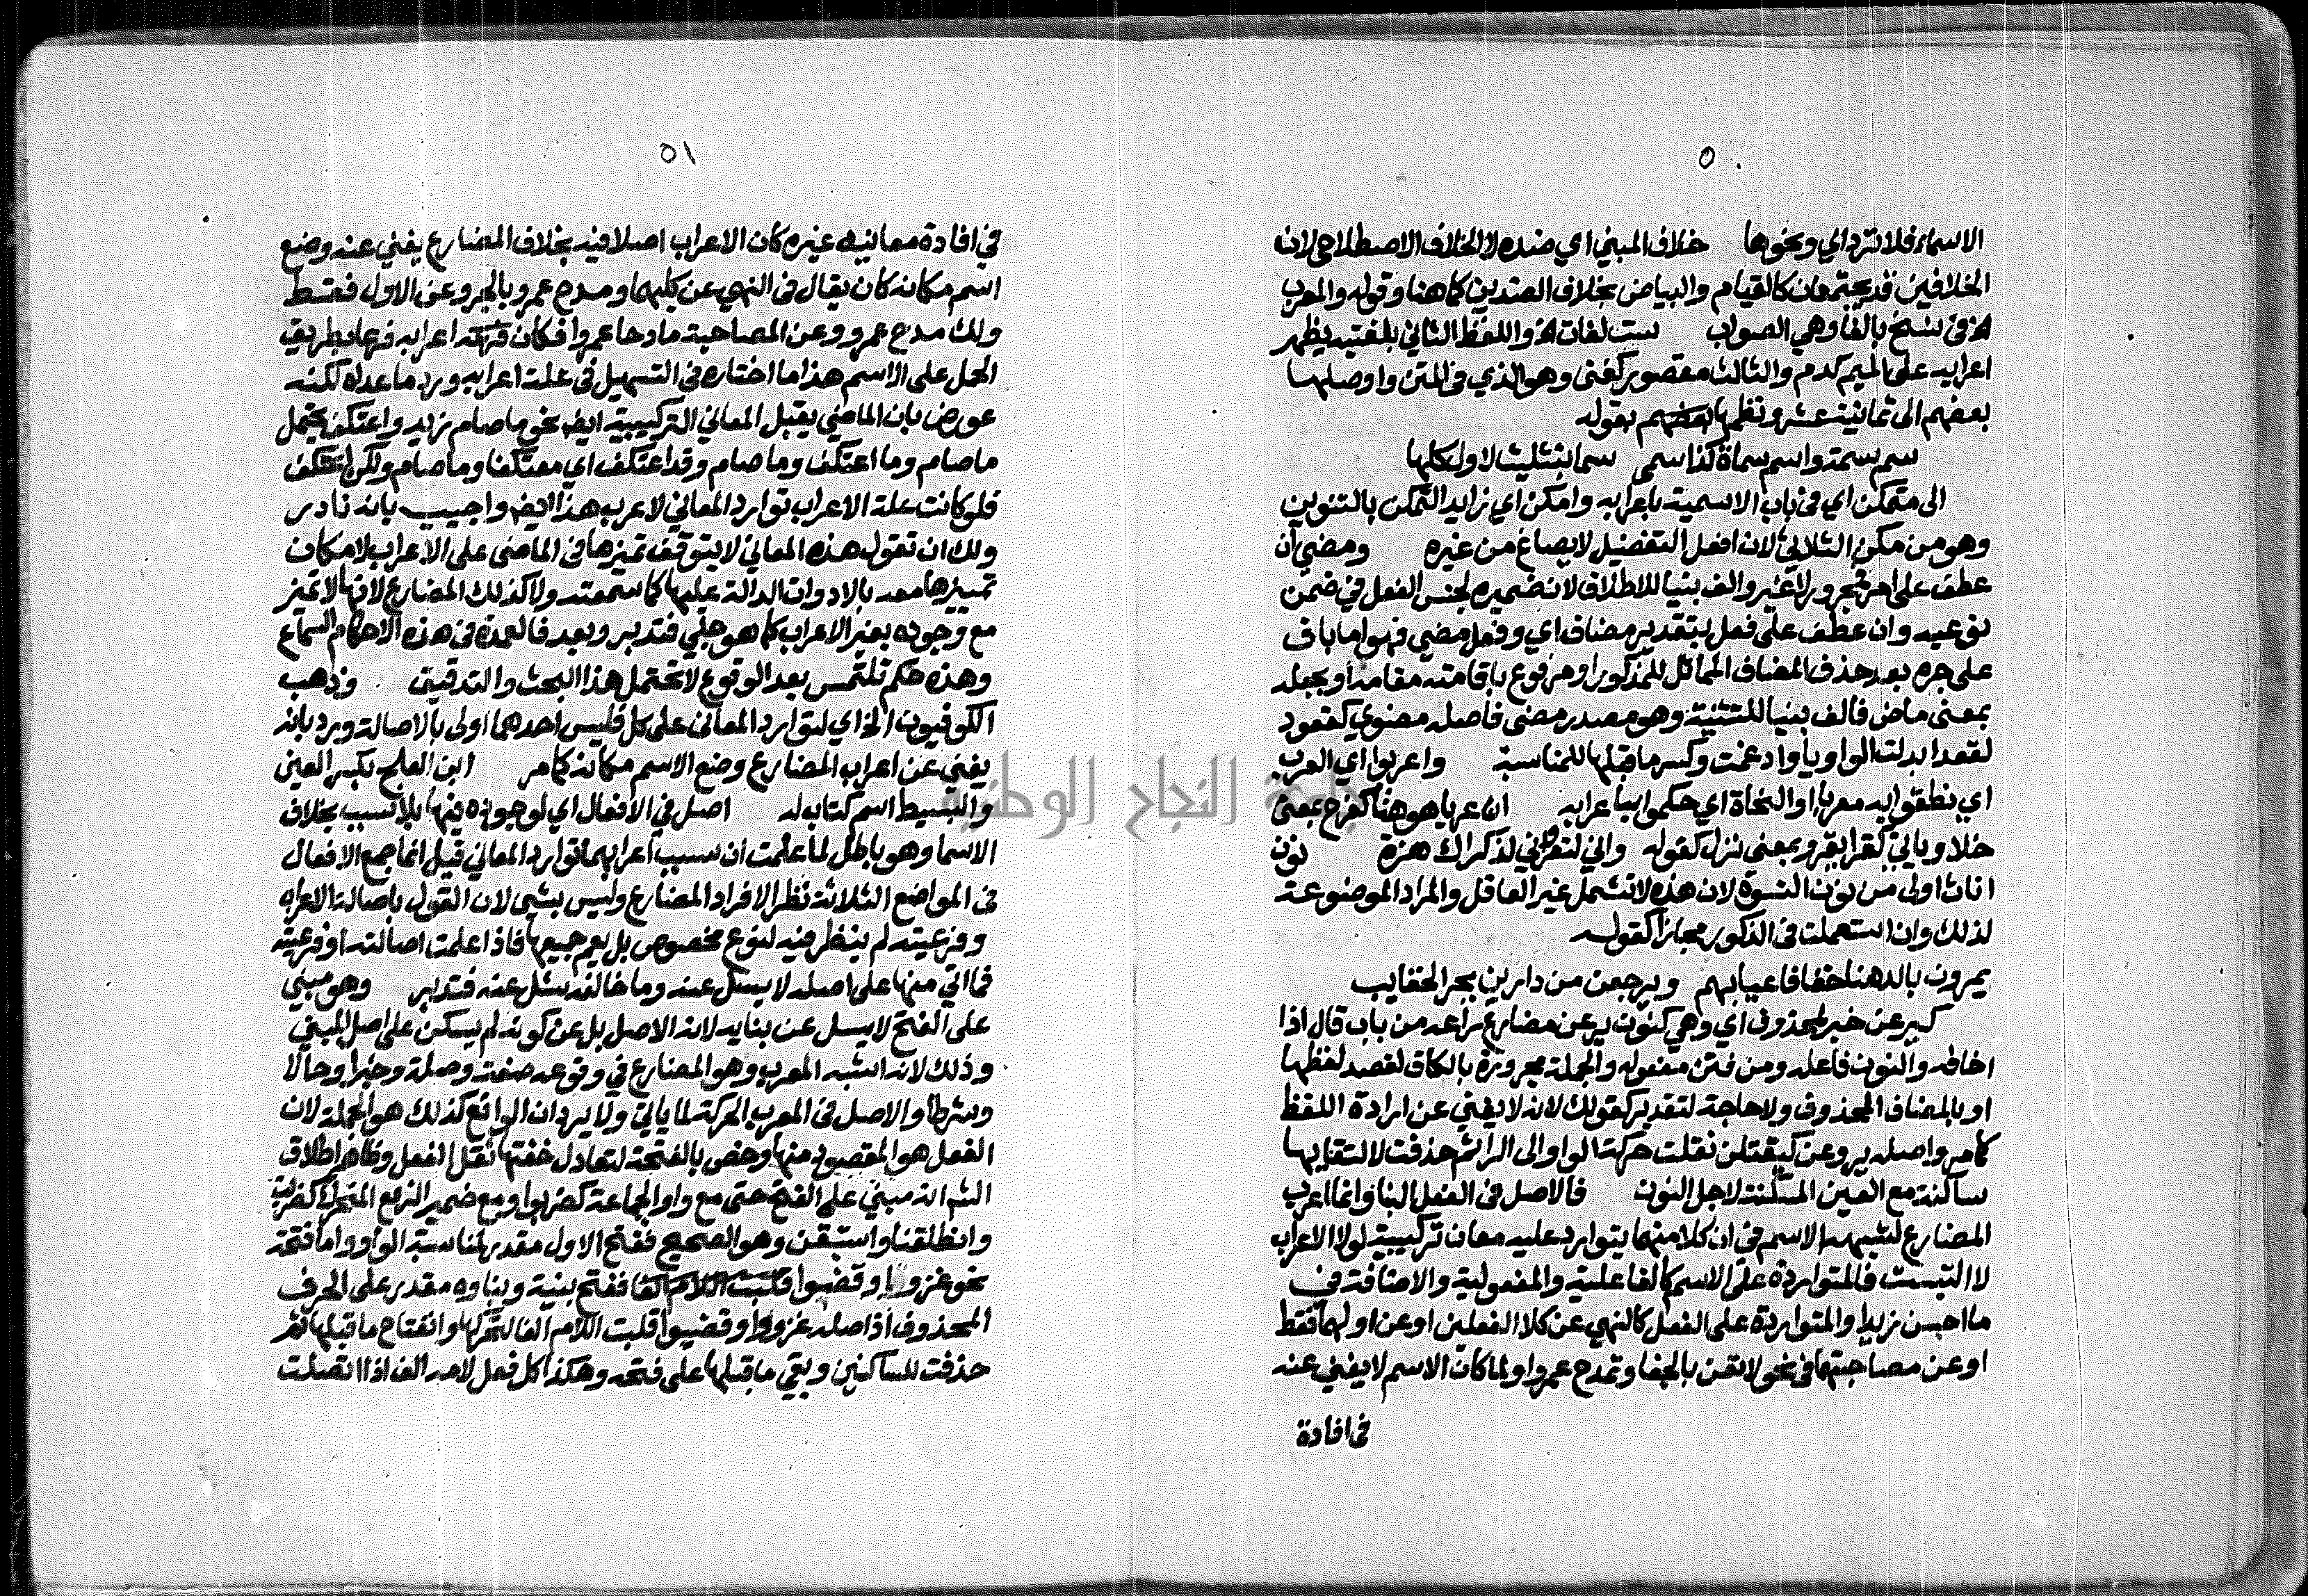 ٥٠
الاسماء فلا ترد اي ونحوها خلاف المبني اي ضده لا الخلاف الاصطلاحي لان
الخلافين قد يجتمعان كالقيام والبياض بخلاف الضدين كما هنا وقوله والمعرب
الخ في نسخ بالفا وهي الصواب ست لغات الخ واللفظ الثاني بلغتيه يظهر
اعرابه على الميم كدم والثالث مقصور كفتى وهو الذي في المتن واوصلها
بعضهم الى ثمانية عشر ونظمها بعضهم بقوله
سم سمة واسم سماة كذا سمى سما بتثليث لاول كلها
الى متمكن اي في باب الاسمية باعرابه وامكن اي زايد التمكن بالتنوين
وهو من مكن الثلاثي لان افعل التفضيل لا يصاغ من غيره ومضي ان
عطف على امر فمجرور لا غير والف بنيا للاطلاق لان ضميره لجنس الفعل في ضمن
نوعيه وان عطف على فعل بتقدير مضاف اي وفعل مضي فهو اما باق
على جره بعد حذف المضاف المماثل للمذكور او مرفوع باقامته مقامه او بجعله
بمعنى ماض فالف بنيا للتثنية وهو مصدر مضى فاصله مضوي كقعود
لقعد ابدلت الواو يا وادغمت وكسر ما قبلها للمناسبة واعربوا اي العرب
اي نطقوا به معربا او النحاة اي حكموا باعرابه ان عريا هو هنا كفرح بمعنى
خلا وياتي كقرا يقرو بمعنى نزل كقوله واني لتعروني لذكراك هزة نون
اناث اولى من نون النسوة لان هذه لا تشمل غير العاقل والمراد الموضوعة
لذلك وان استعملت في الذكور مجازا كقوله
يمرون بالدهنا خفافا عيابهم ويرجعن من دارين بجر الحقايب
كيرعن خبر لمحذوف اي وهي كنون يرعن مضارع راعه من باب قال اذا
اخافه والنون فاعله ومن فتن مفعوله والجملة مجرورة بالكاف لقصد لفظها
او بالمضاف المحذوف ولا حاجة لتقدير كقولك لانه لا يغني عن ارادة اللفظ
كما مر واصله يروعن كيقتلن نقلت حركة الواو الى الرا ثم حذفت لالتقايها
ساكنة مع العين المسكنة لاجل النون فالاصل في الفعل البنا وانما اعرب
المضارع لشبهه الاسم في ان كلا منهما يتوارد عليه معان تركيبية لولا الاعراب
لالتبست فالمتواردة على الاسم كالفاعلية والمفعولية والاضافة في
ما احسن زيدا والمتواردة على الفعل كالنهي عن كلا الفعلين او عن اولهما فقط
او عن مصاحبتهما في نحو لا تعن بالجفا وتمدح عمروا ولما كان الاسم لا يغني عنه
في افادة
٥١
في افادة معانيه غيره كان الاعراب اصلا فيه بخلاف المضارع يغني عنه وضع
اسم مكانه كان يقال في النهي عن كليهما ومدح عمرو بالجر وعن الاول فقط
ولك مدح عمرو وعن المصاحبة مادحا عمروا فكان اعرابه فرعا بطريق
الحمل على الاسم هذا ما اختاره في التسهيل في علة اعرابه ورد ما عداه لكنه
عورض بان الماضي يقبل المعاني التركيبية ايض نحو ما صام زيد واعتكف يحتمل
ما صام وما اعتكف وما صام وقد اعتكف اي معتكفا وما صام ولكن اعتكف
فلو كانت علة الاعراب توارد المعاني لاعرب هذا ايض واجيب بانه نادر
ولك ان تقول هذه المعاني لا يتوقف تميزها في الماضي على الاعراب لامكان
تمييزها معه بالادوات الدالة عليها كما سمعته ولا كذلك المضارع لانها لا تميز
مع وجوده بغير الاعراب كما هو جلي فتدبر وبعد فالعمدة في هذه الاحكام السماع
وهذه حكم تلتمس بعد الوقوع لا تحتمل هذا البحث والتدقيق وذهب
الكوفيون الخ اي لتوارد المعاني على كل فليس احدهما اولى بالاصالة ويرد بانه
يغني عن اعراب المضارع وضع الاسم مكانه كما مر ابن العلج بكسر العين
والبسيط اسم كتاب له اصل في الافعال اي لوجوده فيها بلا سبب بخلاف
الاسما وهو باطل لما علمت ان سبب اعرابهما توارد المعاني قيل انما جمع الافعال
في المواضع الثلاثة نظرا لافراد المضارع وليس بشي لان القول باصالة الاعراب
وفرعيته لم ينظر فيه لنوع مخصوص بل يعم جميعها فاذا علمت اصالته او فرعيته
فما اتي منها على اصله لا يسئل عنه وما خالفه سئل عنه فتدبر وهو مبني
على الفتح لا يسل عن بنايه لانه الاصل بل عن كونه لم يسكن على اصل المبني
وذلك لانه اشبه المعرب وهو المضارع في وقوعه صفة وصلة وخبرا وحالا
وشرطا والاصل في المعرب الحركة لما ياتي ولا يرد ان الواقع كذلك هو الجملة لان
الفعل هو المقصود منها وخص بالفتحة لتعادل خفتها ثقل الفعل وظاهر اطلاق
الشم انه مبني على الفتح حتى مع واو الجماعة كضربوا ومع ضمير الرفع المتحرك كضربت
وانطلقنا واستبقن وهو الصحيح ففتح الاول مقدر لمناسبة الواو واما فتحة
نحو غزوا وقضوا ففتح بنية وبناوه مقدر على الحرف
المحذوف اذ اصله غزووا وقضيوا قلبت اللام الفا لتحركها وانفتاح ما قبلها ثم
حذفت للساكنين وبقي ما قبلها على فتحه وهكذا كل فعل لامه الف اذا اتصلت
جامعة النجاح الوطنية